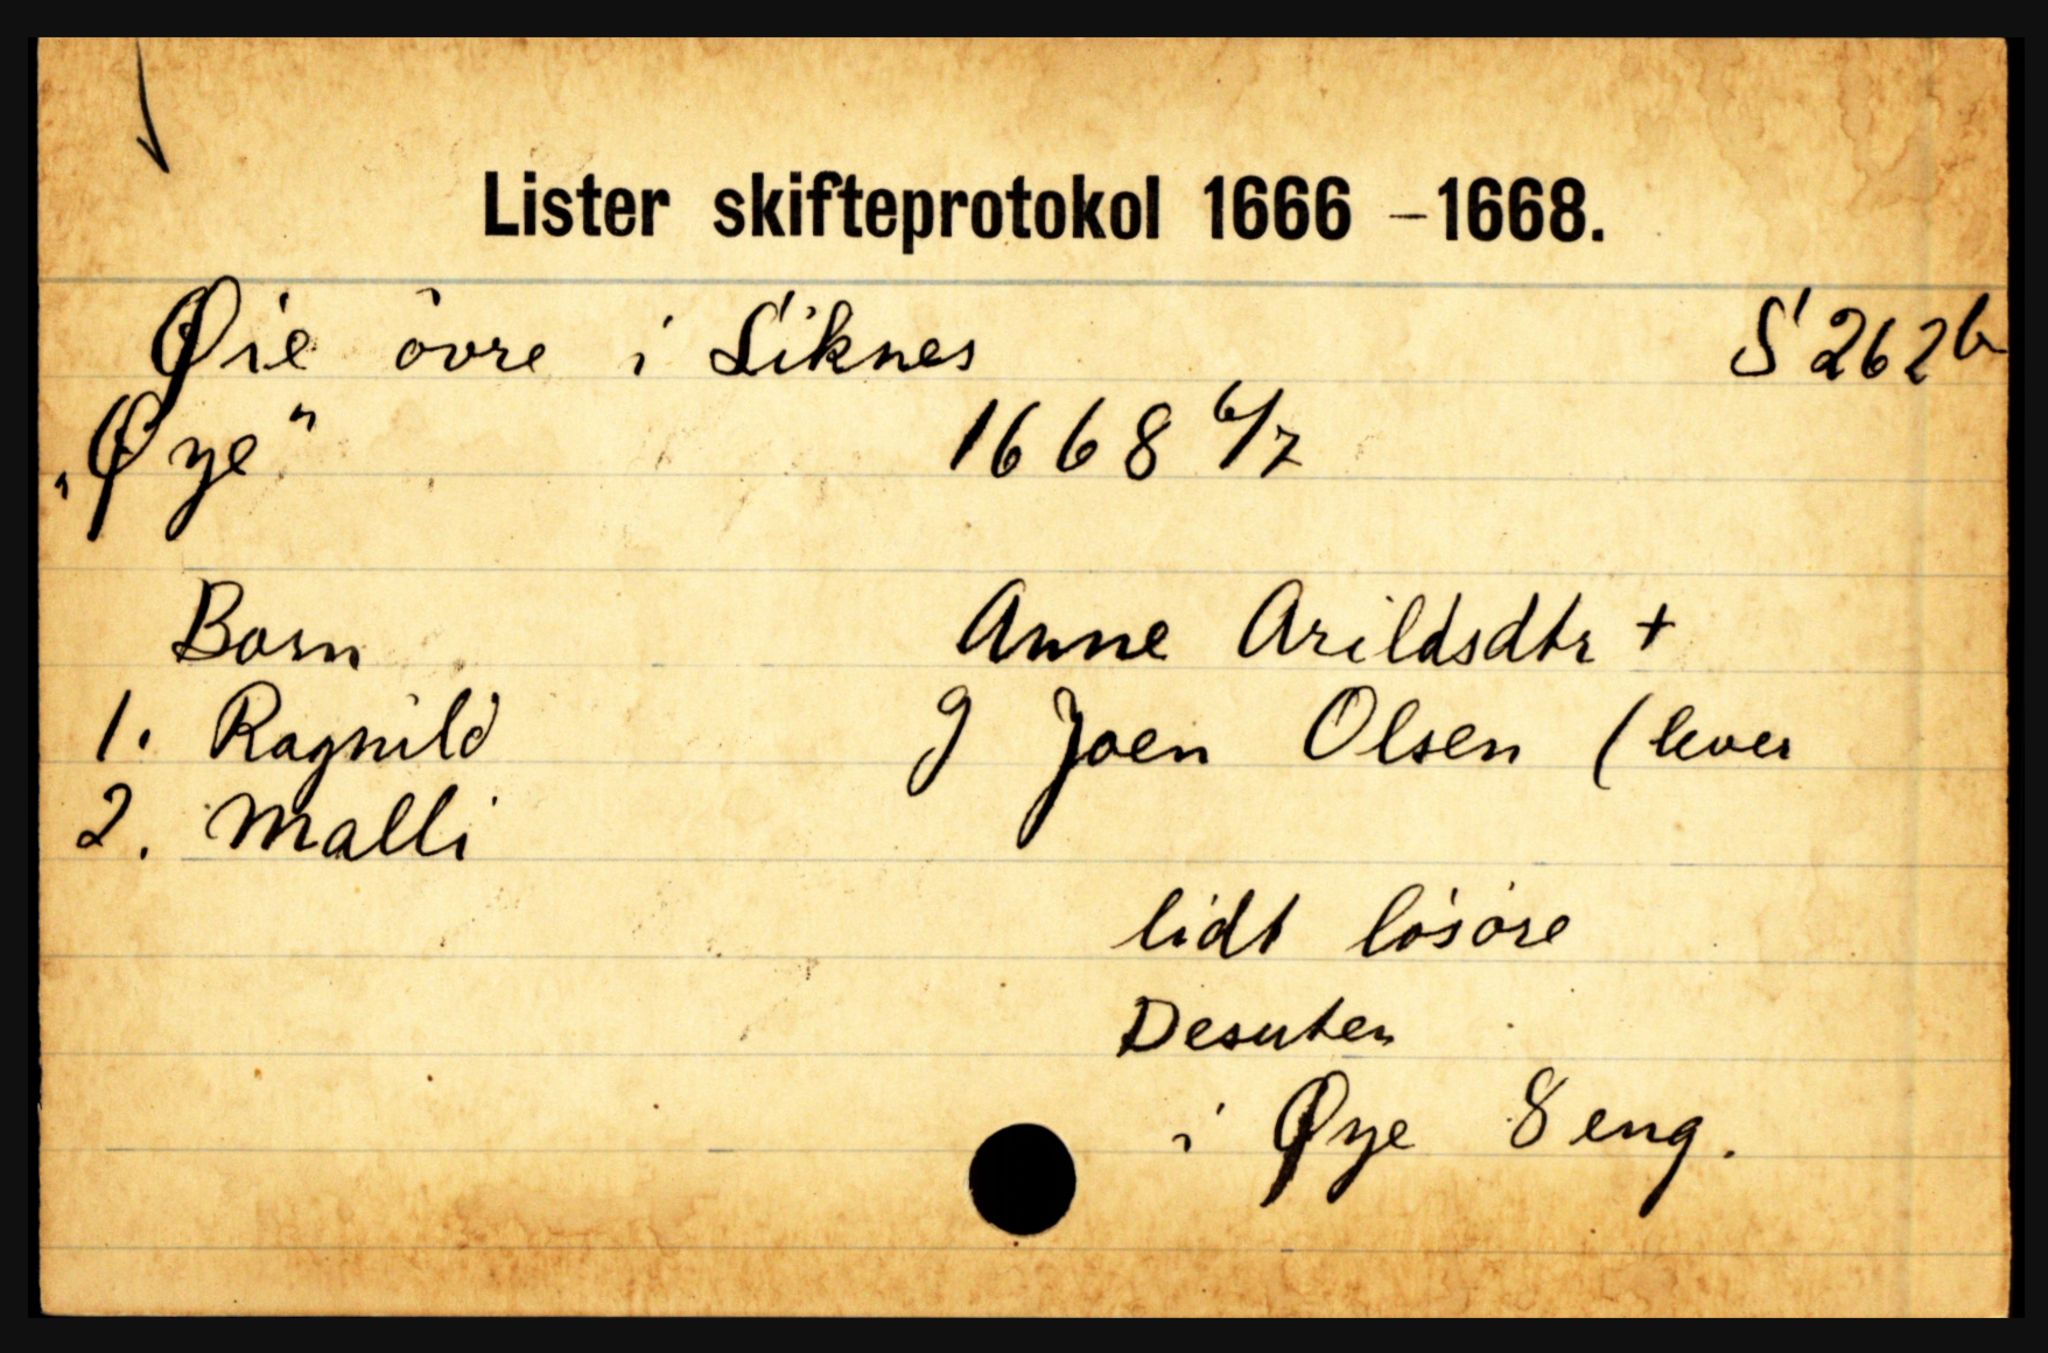 Lister skifteprotokol 1666 – 1668.
Øie övre i Liknes S 262b
"Øye" 1668 6/7
Born Anne Arildsdtr +
1. Ragnild g Joen Olsen (lever
2. Malli
lidt lösöre
Desuten
i Øye 8 eng.